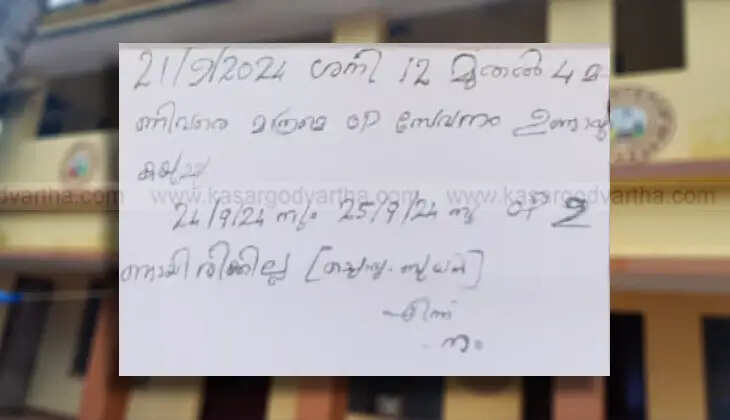 21/9/2024 ശനി 12 മുതൽ 4 മ
ണിവരെ മാത്രമെ OP സേവനം ഉണ്ടാവു
കയുള്ളു
www.kasargodvartha.com www.kasargodvartha.com
24/9/24 നും 25/9/24 നു OP ഉ
ണ്ടായിരിക്കില്ല
എന്ന്